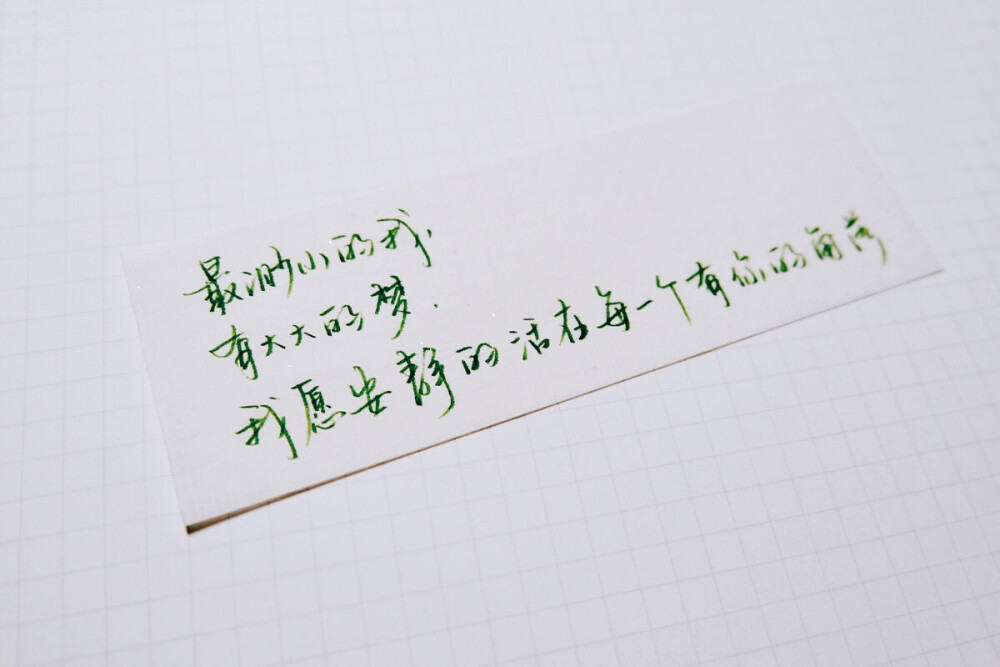 最渺小的我，
有大大的梦．
我愿安静的活在每一个有你的角落